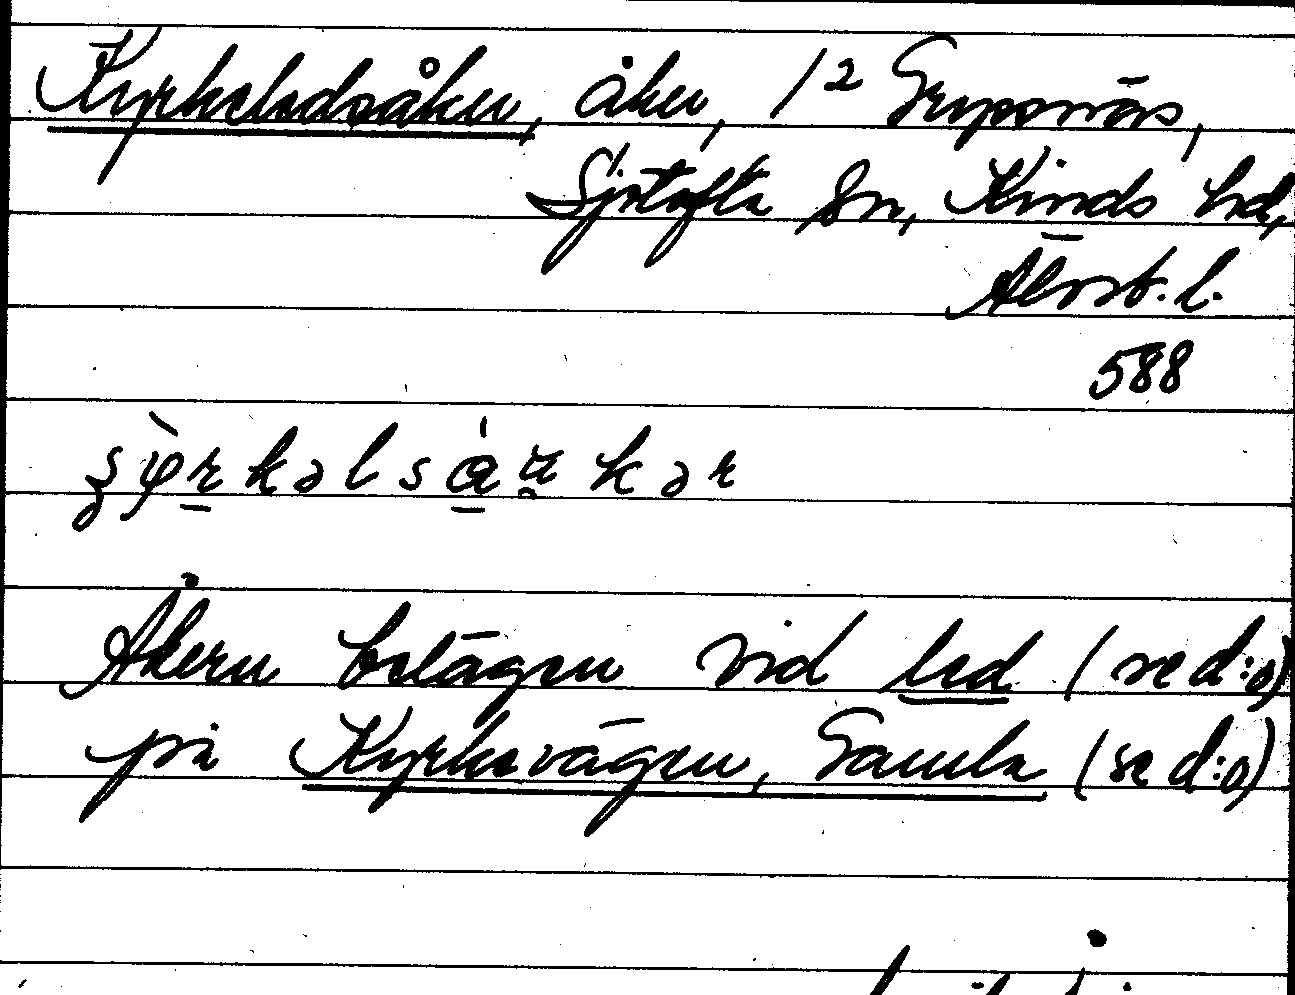 Kyrkeledsåker, åker, 1² Grypsnäs,
Sjötofta sn, Kinds hd,
Älvsb. l.
588
Åkern belägen vid led (se d:o)
på Kyrkevägen, Gamla (se d:o)